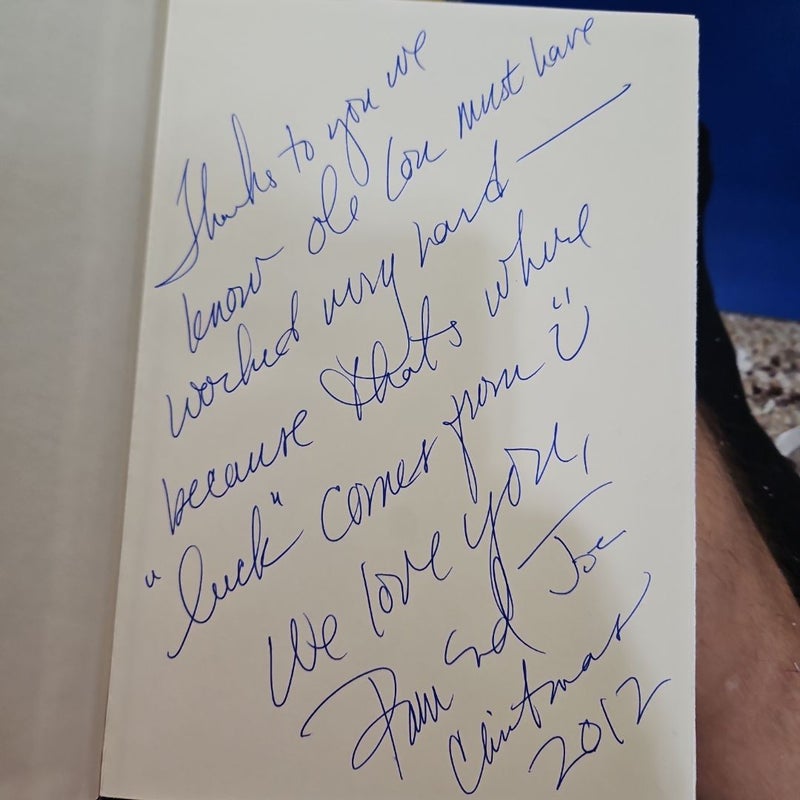 Thanks to you we
know ole Lou must have
worked very hard —
because thats where
"luck" comes from ü
We love you,
Pam and Joe
Christmas
2012